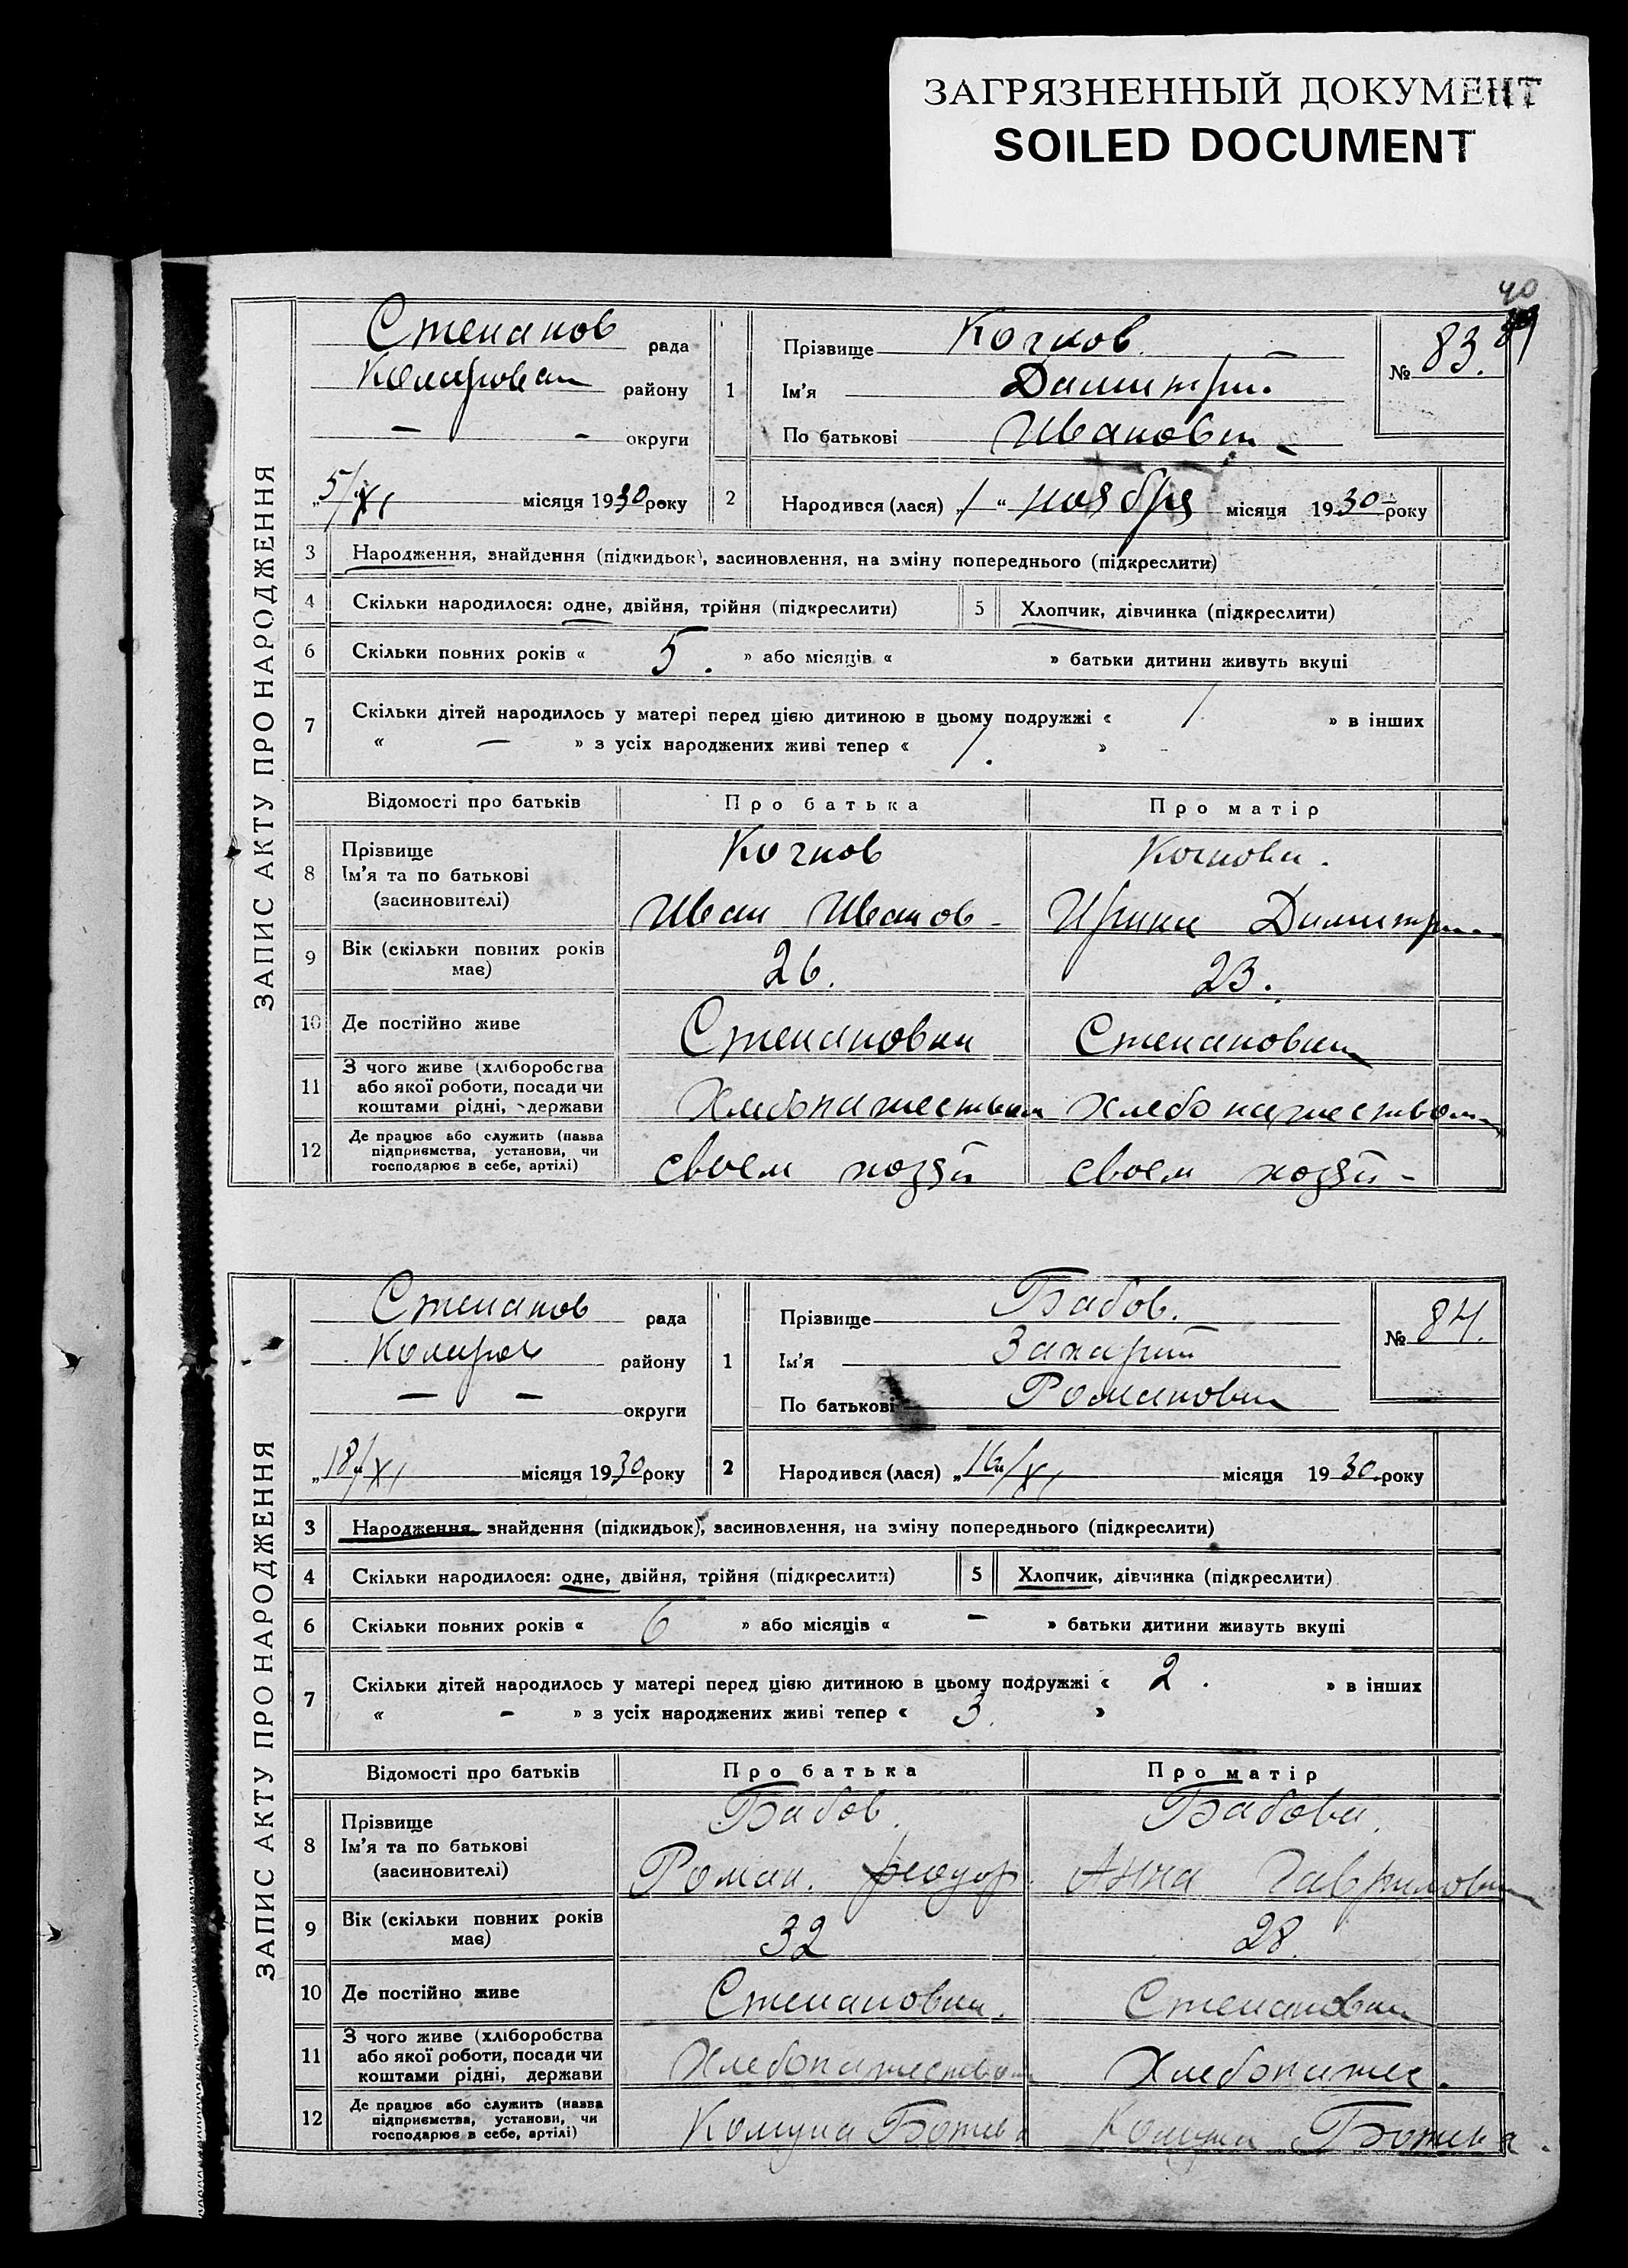 ЗАГРЯЗНЕННЫЙ ДОКУМЕНТ
SOILED DOCUMENT
40
39
ЗАПИС АКТУ ПРО НАРОДЖЕННЯ
Степанов рада
Коларовск району
— — округи
„5/XI місяця 1930 року
1 Прізвище Кочков
Ім'я Димитри
По батькові Иванович
№ 83.
2 Народився (лася) „1“ ноября місяця 1930 року
3 Народження, знайдення (підкидьок), засиновлення, на зміну попереднього (підкреслити)
4 Скільки народилося: одне, двійня, трійня (підкреслити) 5 Хлопчик, дівчинка (підкреслити)
6 Скільки повних років « 5. » або місяців « » батьки дитини живуть вкупі
7 Скільки дітей народилось у матері перед цією дитиною в цьому подружжі « 1 » в інших
« — » з усіх народжених живі тепер « 1. »
Відомості про батьків Про батька Про матір
8 Прізвище Ім'я та по батькові (засиновителі)
Кочков Кочкова.
Иван Иванов- Ирина Димитри
9 Вік (скільки повних років має) 26. 23.
10 Де постійно живе Степановки Степановки
11 З чого живе (хліборобства або якої роботи, посади чи коштами рідні, держави
Хлебопашеством хлебопашеством
12 Де працює або служить (назва підприємства, установи, чи господарює в себе, артілі)
своем хозяй своем хозяй-
ЗАПИС АКТУ ПРО НАРОДЖЕННЯ
Степанов рада
Коларов району
— — округи
„18/XI місяця 1930 року
1 Прізвище Бабов.
Ім'я Захарий
По батькові Романович
№ 84.
2 Народився (лася) „16/XI місяця 1930. року
3 Народження, знайдення (підкидьок), засиновлення, на зміну попереднього (підкреслити)
4 Скільки народилося: одне, двійня, трійня (підкреслити) 5 Хлопчик, дівчинка (підкреслити)
6 Скільки повних років « 6 » або місяців « — » батьки дитини живуть вкупі
7 Скільки дітей народилось у матері перед цією дитиною в цьому подружжі « 2. » в інших
« — » з усіх народжених живі тепер « 3. »
Відомості про батьків Про батька Про матір
8 Прізвище Ім'я та по батькові (засиновителі)
Бабов. Бабова.
Роман. Феодор Анна Гавриловн
9 Вік (скільки повних років має) 32 28.
10 Де постійно живе Степановки. Степановки
11 З чого живе (хліборобства або якої роботи, посади чи коштами рідні, держави
Хлебопашеством Хлебопашес.
12 Де працює або служить (назва підприємства, установи, чи господарює в себе, артілі)
Комуна Ботева Комуна Ботева.